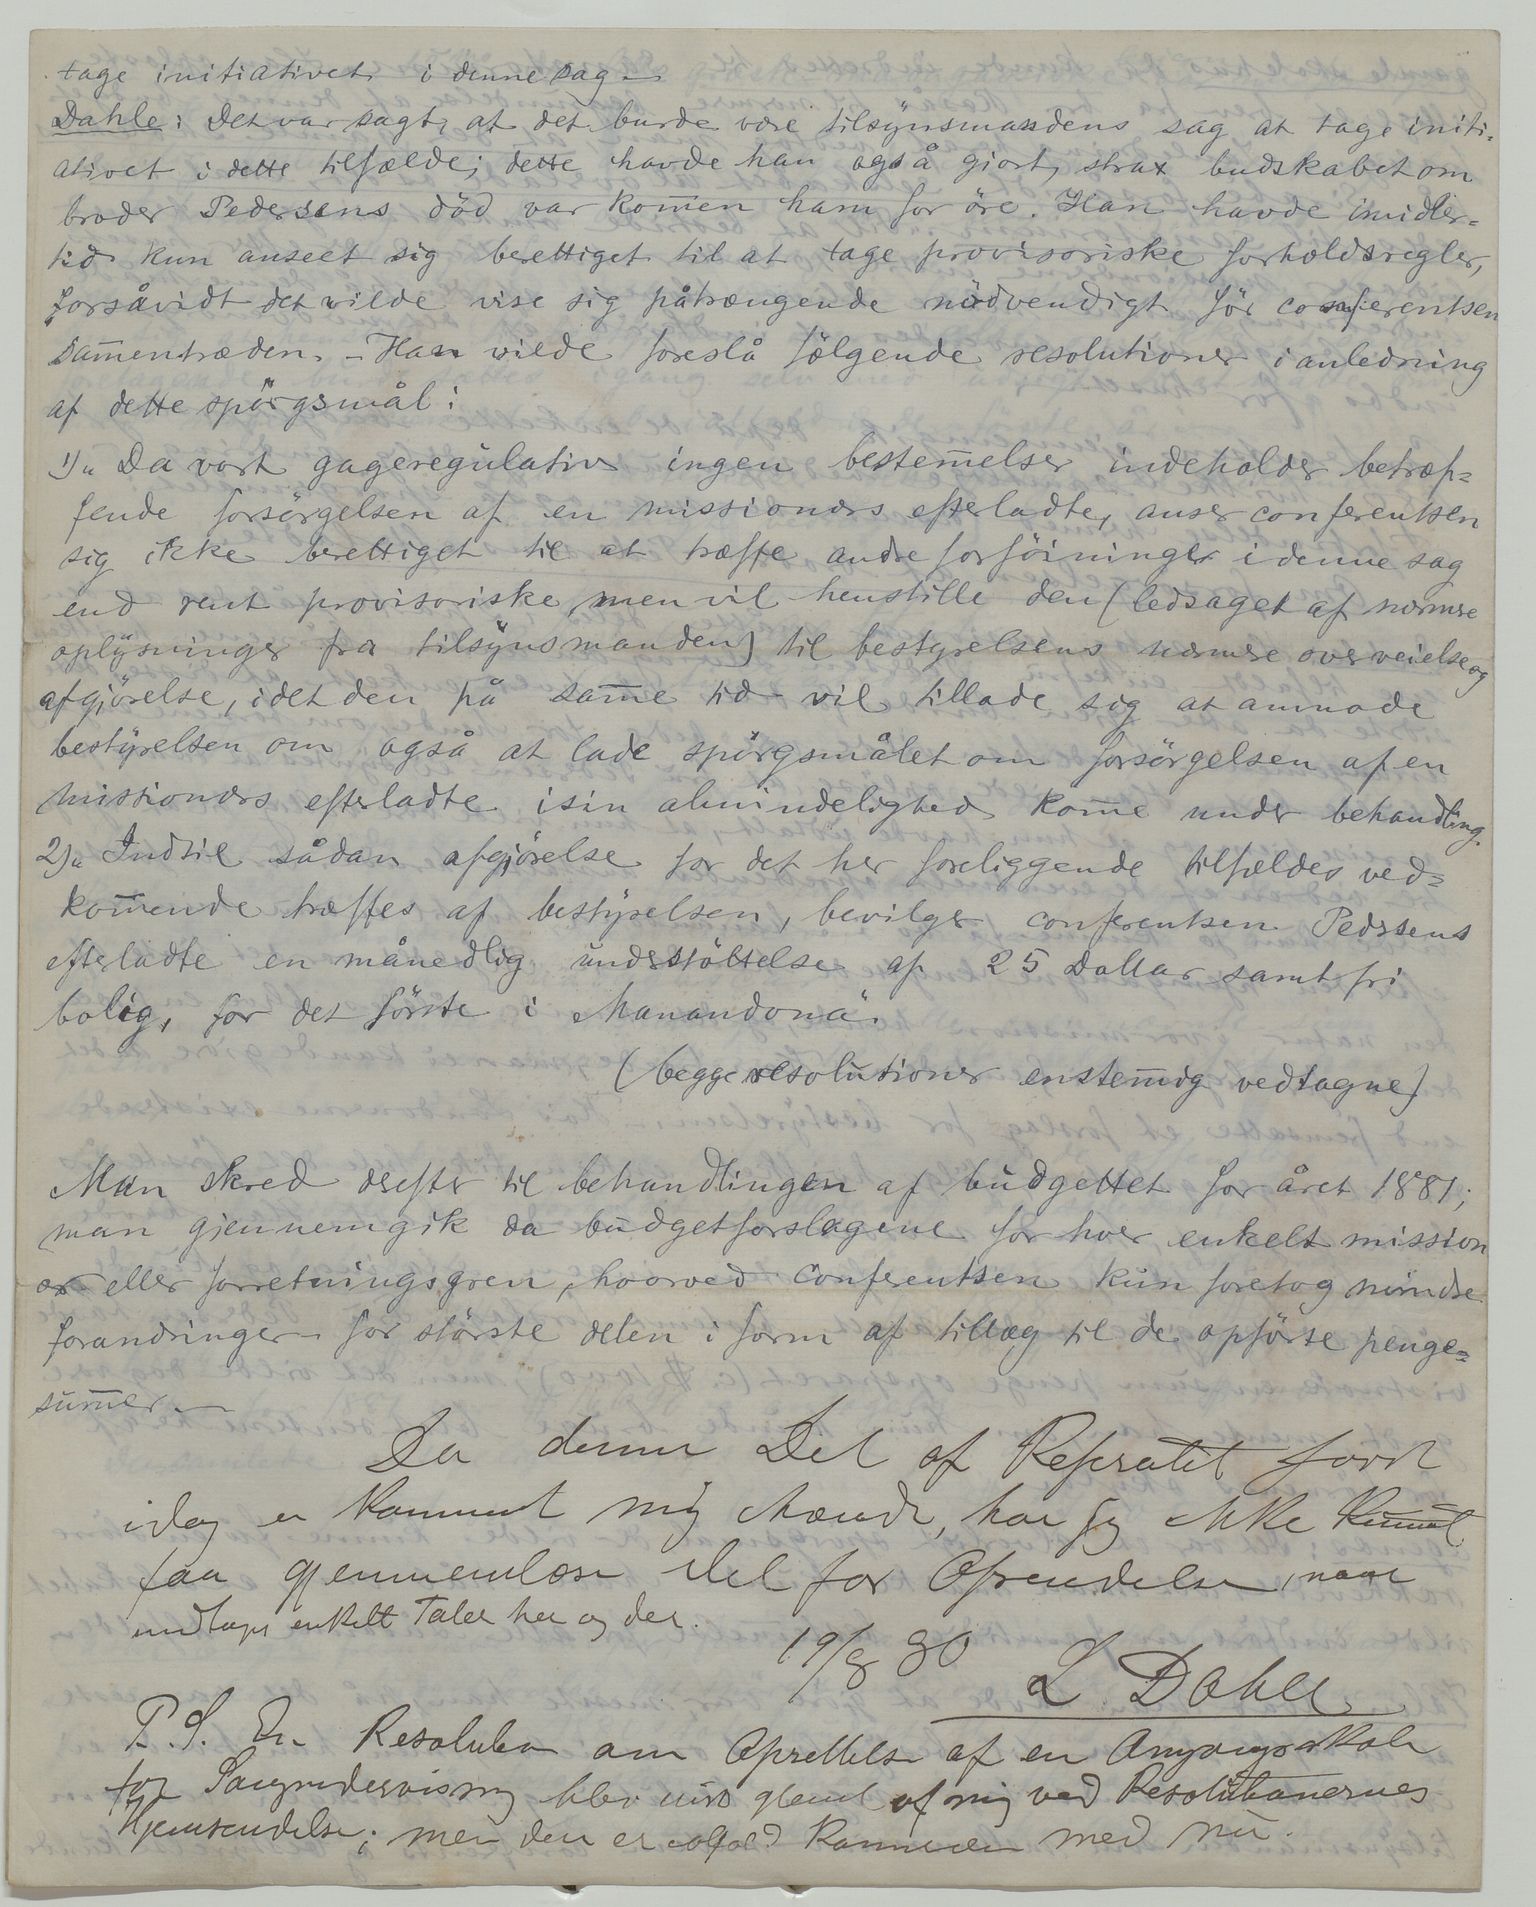 tage initiativet i denne sag.—
Dahle: Det var sagt, at det burde være tilsynsmandens sag at tage initi-
ativet i dette tilfælde; dette havde han også giort, strax budskabet om
broder Pedersens død var kom̅en ham for öre. Han havde imidler=
tid kun anseet sig berettiget til at tage provisoriske forholdsregler,
forsåvidt det vilde vise sig påtrængende nödvendigt för conferentsen
sam̅entræden. – Han vilde foreslå følgende resolutioner i anledning
af dette spörgsmål:
1)" Da vort gageregulativ ingen bestem̅elser indeholder betræf=
fende forsörgelsen af en missionærs efterladte, anser conferentsen
sig ikke berettiget til at træffe andre forföininger i denne sag
end rent provisoriske, men vil henstille den (ledsaget af nærmere
oplysninger fra tilsynsmanden) til bestyrelsens nærmere overveielse og
afgjörelse, idet den på sam̅e tid vil tillade sig at anmode
bestyrelsen om også at lade spörgsmålet om forsörgelsen af en
missionærs efterladte i sin almindelighed kom̅e under behandling.
2)" Indtil sådan afgjörelse for det her foreliggende tilfældes ved=
kom̅ende træffes af bestyrelsen, bevilger conferentsen Pedersens
efterladte en månedlig understöttelse af 25 Dollar samt fri
bolig, for det förste i Manandona".
(begge resolutioner enstem̅ig vedtagne)
Man skred derefter til behandlingen af budgettet for året 1881;
man gjennemgik da budgetforslagene for hver enkelt mission
ær eller forretningsgren, hvorved conferentsen kun foretog mindre
forandringer – for störste delen i form af tillæg til de opförte penge=
sum̅er.—
Da denne Del af Referatet först
idag er kommet mig ihænde, har jeg ikke kunnet
faa gjennemlæse det før Afsendelsen, naar
undtages enkelte Taler her og der.
19/8 80 L. Dahle
P.S. En Resolution om Oprettelse af en Asyls skole
for Sangundervisning blev nok glemt af mig ved Resolutionernes
Hjemsendelse; men den er ialfald kommen med nu.